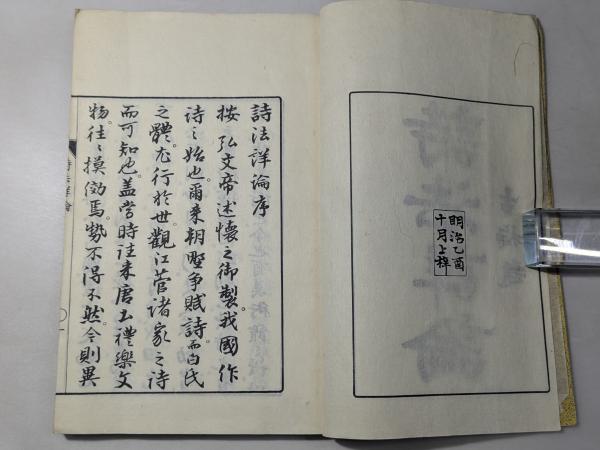 明治乙酉
十月上梓
詩法詳論序
按弘文帝述懷之御製我國作
詩之始也爾来朝野争賦詩而白氏
之體尤行於世觀江菅諸家之詩
而可知也蓋當時往来唐土禮樂文
物往々摸倣焉勢不得不然今則異